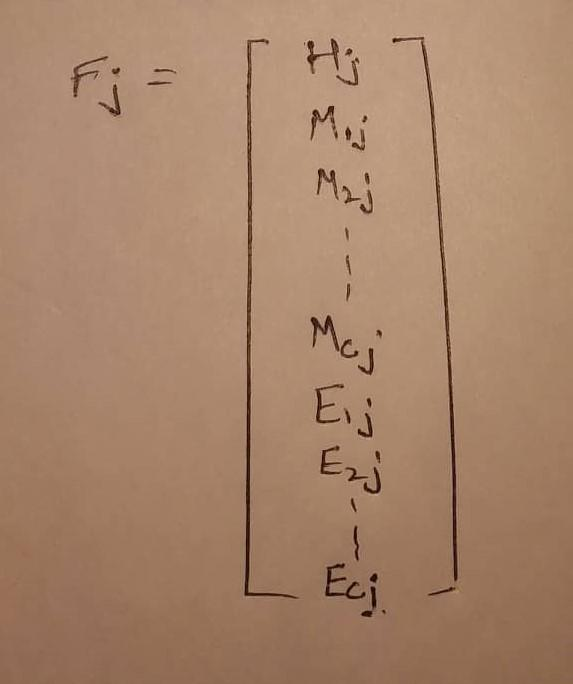 Fj = Hj
M1j
M2j
Mcj
E1j
E2j
Ecj.